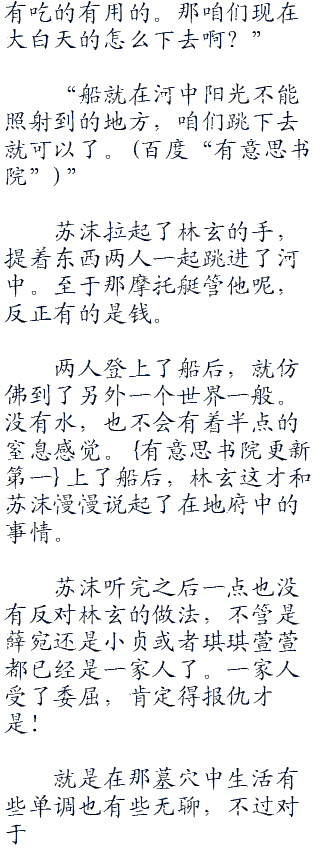 有吃的有用的。那咱们现在
大白天的怎么下去啊？”
“船就在河中阳光不能
照射到的地方，咱们跳下去
就可以了。(百度“有意思书
院”)”
苏沫拉起了林玄的手，
提着东西两人一起跳进了河
中。至于那摩托艇管他呢，
反正有的是钱。
两人登上了船后，就仿
佛到了另外一个世界一般。
没有水，也不会有着半点的
窒息感觉。{有意思书院更新
第一}上了船后，林玄这才和
苏沫慢慢说起了在地府中的
事情。
苏沫听完之后一点也没
有反对林玄的做法，不管是
薛宛还是小贞或者琪琪萱萱
都已经是一家人了。一家人
受了委屈，肯定得报仇才
是！
就是在那墓穴中生活有
些单调也有些无聊，不过对
于